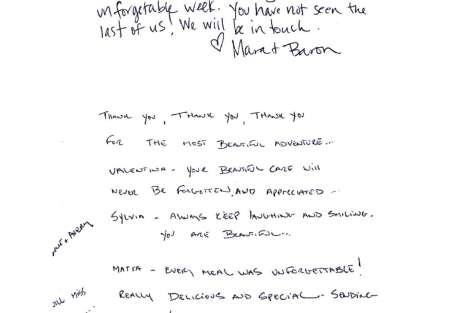 unforgetable week. You have not seen the
last of us! We will be in touch.
♡ Mara + Baron
THANK YOU, THANK YOU, THANK YOU
FOR THE MOST BEAUTIFUL ADVENTURE...
VALENTINA - YOUR BEAUTIFUL CARE WILL
NEVER BE FORGOTTEN, AND APPRECIATED...
SYLVIA - ALWAYS KEEP LAUGHING AND SMILING.
YOU ARE BEAUTIFUL...
MATTA - EVERY MEAL WAS UNFORGETTABLE!
JILL MISS
REALLY DELICIOUS AND SPECIAL - SENDING